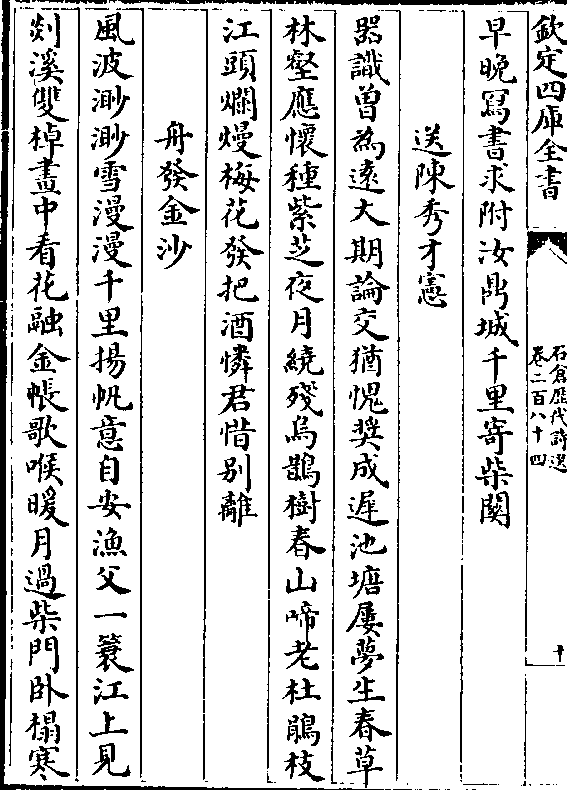 欽定四庫全書
石倉歷代詩選
卷二百八十四
十
早晚寫書求附汝鼎城千里寄柴關
送陳秀才憲
器識曾為遠大期論交猶愧奬成遲池塘屢夢生春草
林壑應懷種紫芝夜月繞殘烏鵲樹春山啼老杜鵑枝
江頭爛熳梅花發把酒憐君惜别離
舟發金沙
風波渺渺雪漫漫千里揚帆意自安漁父一蓑江上見
剡溪雙棹畫中看花融金帳歌喉暖月過柴門卧榻寒